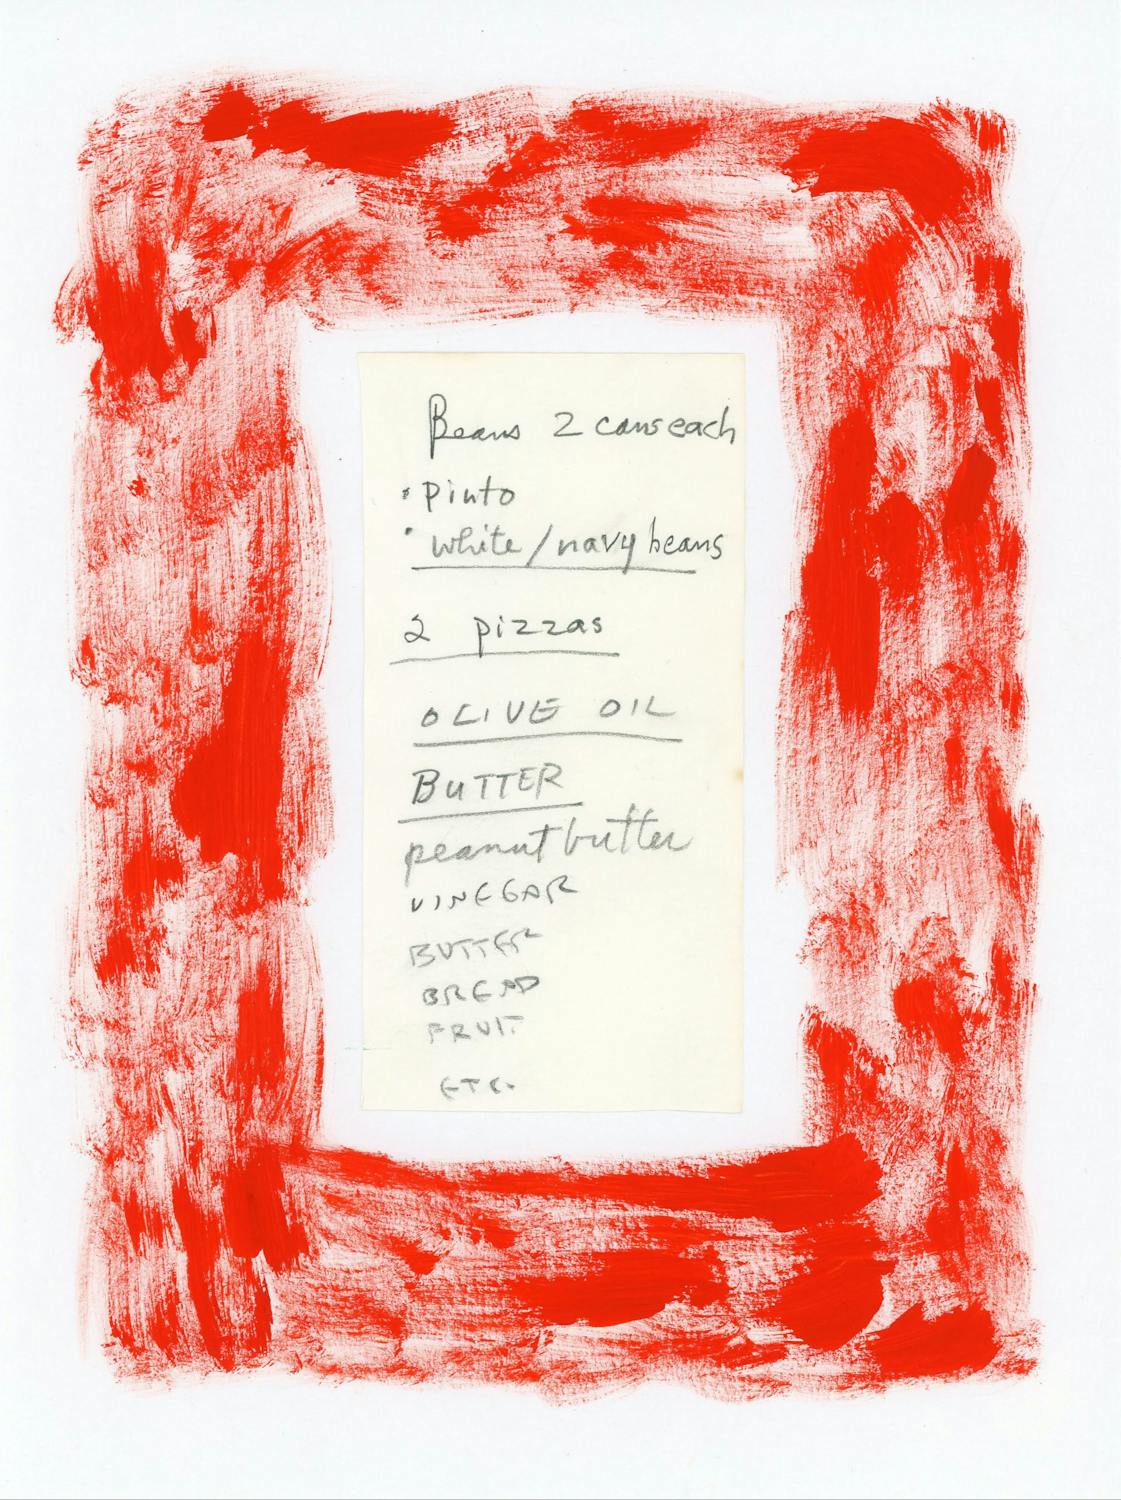 Beans 2 cans each
• pinto
• white/navy beans
2 pizzas
OLIVE OIL
BUTTER
peanut butter
VINEGAR
BUTTER
BREAD
FRUIT
ETC.